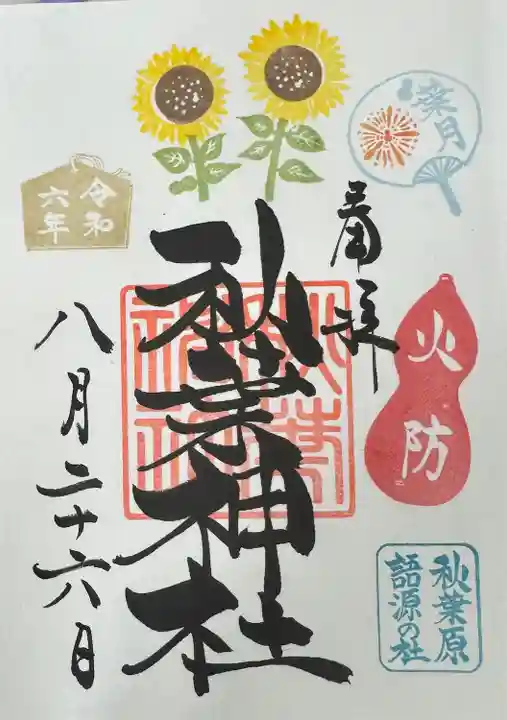 葉月
奉拝
火防
秋葉原
語源の社
秋葉神社
令和
六年
八月二十六日